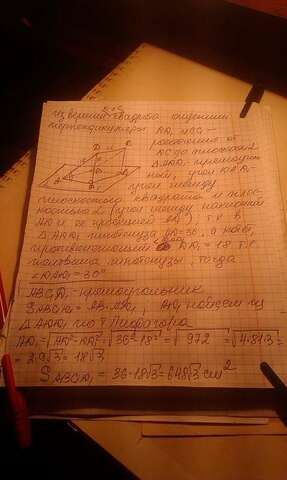 из вершин квадрата опущены
перпендикуляры
расстояние от
DC до плоскости
△ADD₁ - прямоуголь
ный, угол
угол между
плоскостью квадрата и плос-
костью α (угол между наклонной
AD и её проекцией AD₁) т.к в
△ADD₁ гипотенуза AD=36, а катет,
противолежащий DD₁=18 т.е
половина гипотенузы, тогда
∠DAD₁=30°
ABC₁D₁ - прямоугольник
S ABC₁D₁ = AB·AD₁, AD₁ найдем из
△ADD₁ по т Пифагора
AD₁=√AD²-DD₁²=√36²-18²=√972=√4·81·3=
=2·9√3=18√3
S ABC₁D₁ = 36·18√3=648√3 см²